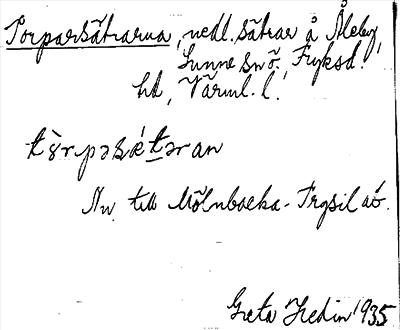 Torparsätrarna, nedl. sätrar å Åleby,
Sunne snö., Fryksd.
hd, Värml. l.
tòrpəsǽtəran
Nu till Mölnbacka-Trysil ab.
Greta Hedin 1935